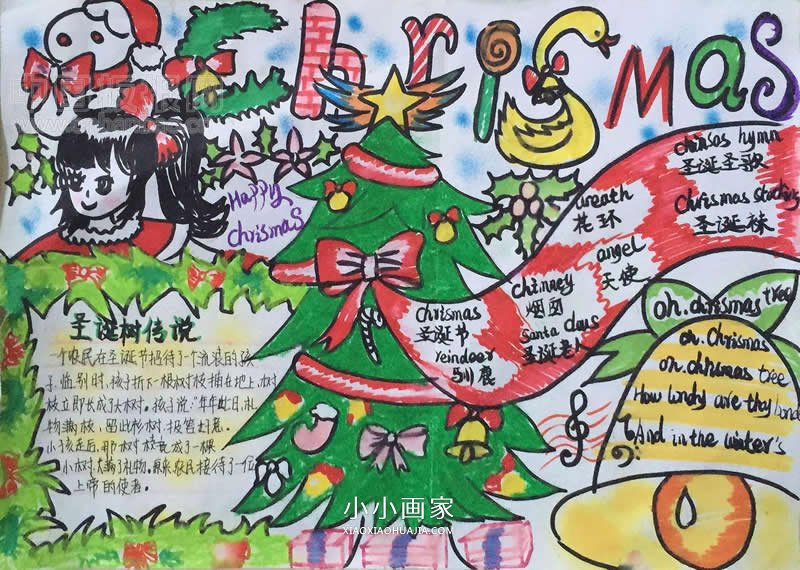 ChrisMas
Happy
chrismas
圣诞树传说
一个农民在圣诞节招待了一个流浪的孩
子,临别时,孩子折下一根树枝插在地上,树
枝立即长成了大树。孩子说:"年年此日,礼
物满枝,留此杉树,报答好意。
小孩走后,那树枝变成了一棵
小树,大满了礼物。原来农民接待了一位
上帝的使者。
chrismas
圣诞节
reindeer
驯鹿
chimney
烟囱
santa claus
圣诞老人
wreath
花环
angel
天使
chrisos hymn
圣诞圣歌
chrismas stocking
圣诞袜
oh. chrismas tree
oh. Chrismas
oh. chrismas tree
How lovely are thy
And in the winter's
小小画家
XIAOXIAOHUAJIA.COM